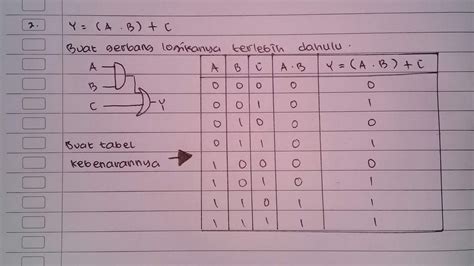 2. Y = (A . B) + C
Buat gerbang logikanya terlebih dahulu.
A
B
C
Y
Buat tabel
kebenarannya
A B C A . B Y = (A . B) + C
0 0 0 0 0
0 0 1 0 1
0 1 0 0 0
0 1 1 0 1
1 0 0 0 0
1 0 1 0 1
1 1 0 1 1
1 1 1 1 1